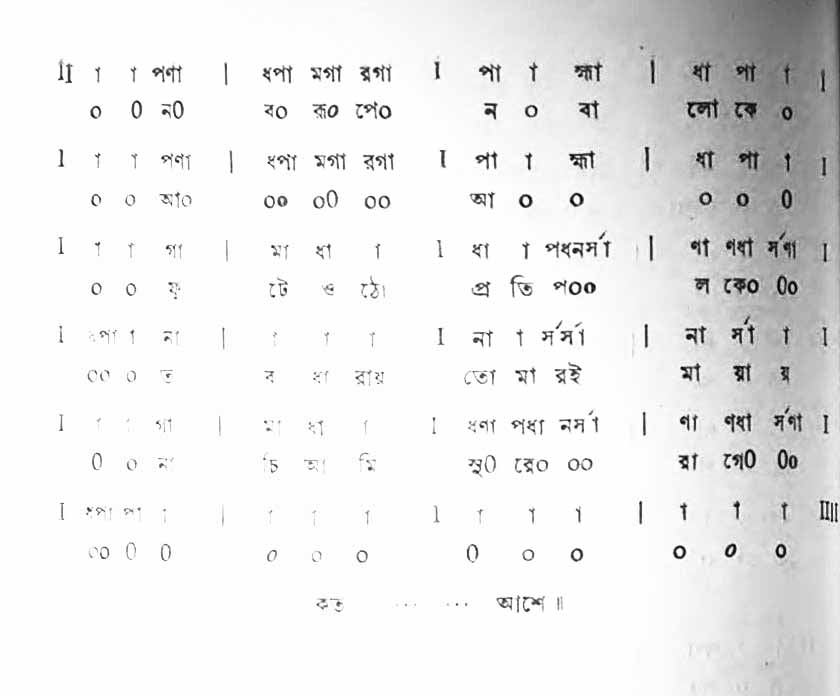 II া া পণা | ধপা মগা রগা I পা া হ্মা | ধা পা া I
০ ০ ন০ ব০ রূ০ পে০ ন ০ বা লো কে ০
I া া পণা | ধপা মগা রগা I পা া হ্মা | ধা পা া I
০ ০ আ০ ০০ ০০ ০০ আ ০ ০ ০ ০ ০
I া া গা | মা ধা া I ধা া পধনর্সা | ণা ণধা র্সণা I
০ ০ ফু টে ও ঠো প্র তি প০০ ল কে০ ০০
I ধপা া না | া া া I না া র্সর্সা | না র্সা া I
০০ ০ ত ব ধা রায় তো মা রই মা য়া য়
I া া গা | মা ধা া I ধণা পধা নর্সা | ণা ণধা র্সণা I
০ ০ না চি আ মি সু০ রে০ ০০ রা গে০ ০০
I ধপা পা া | া া া I া া া | া া া IIII
০০ ০ ০ ০ ০ ০ ০ ০ ০ ০ ০ ০
কত ... ... আশে ॥